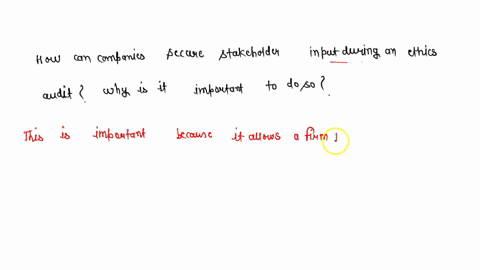 How can companies secure stakeholder input during an ethics
audit? why is it important to do so?
This is important because it allows a firm